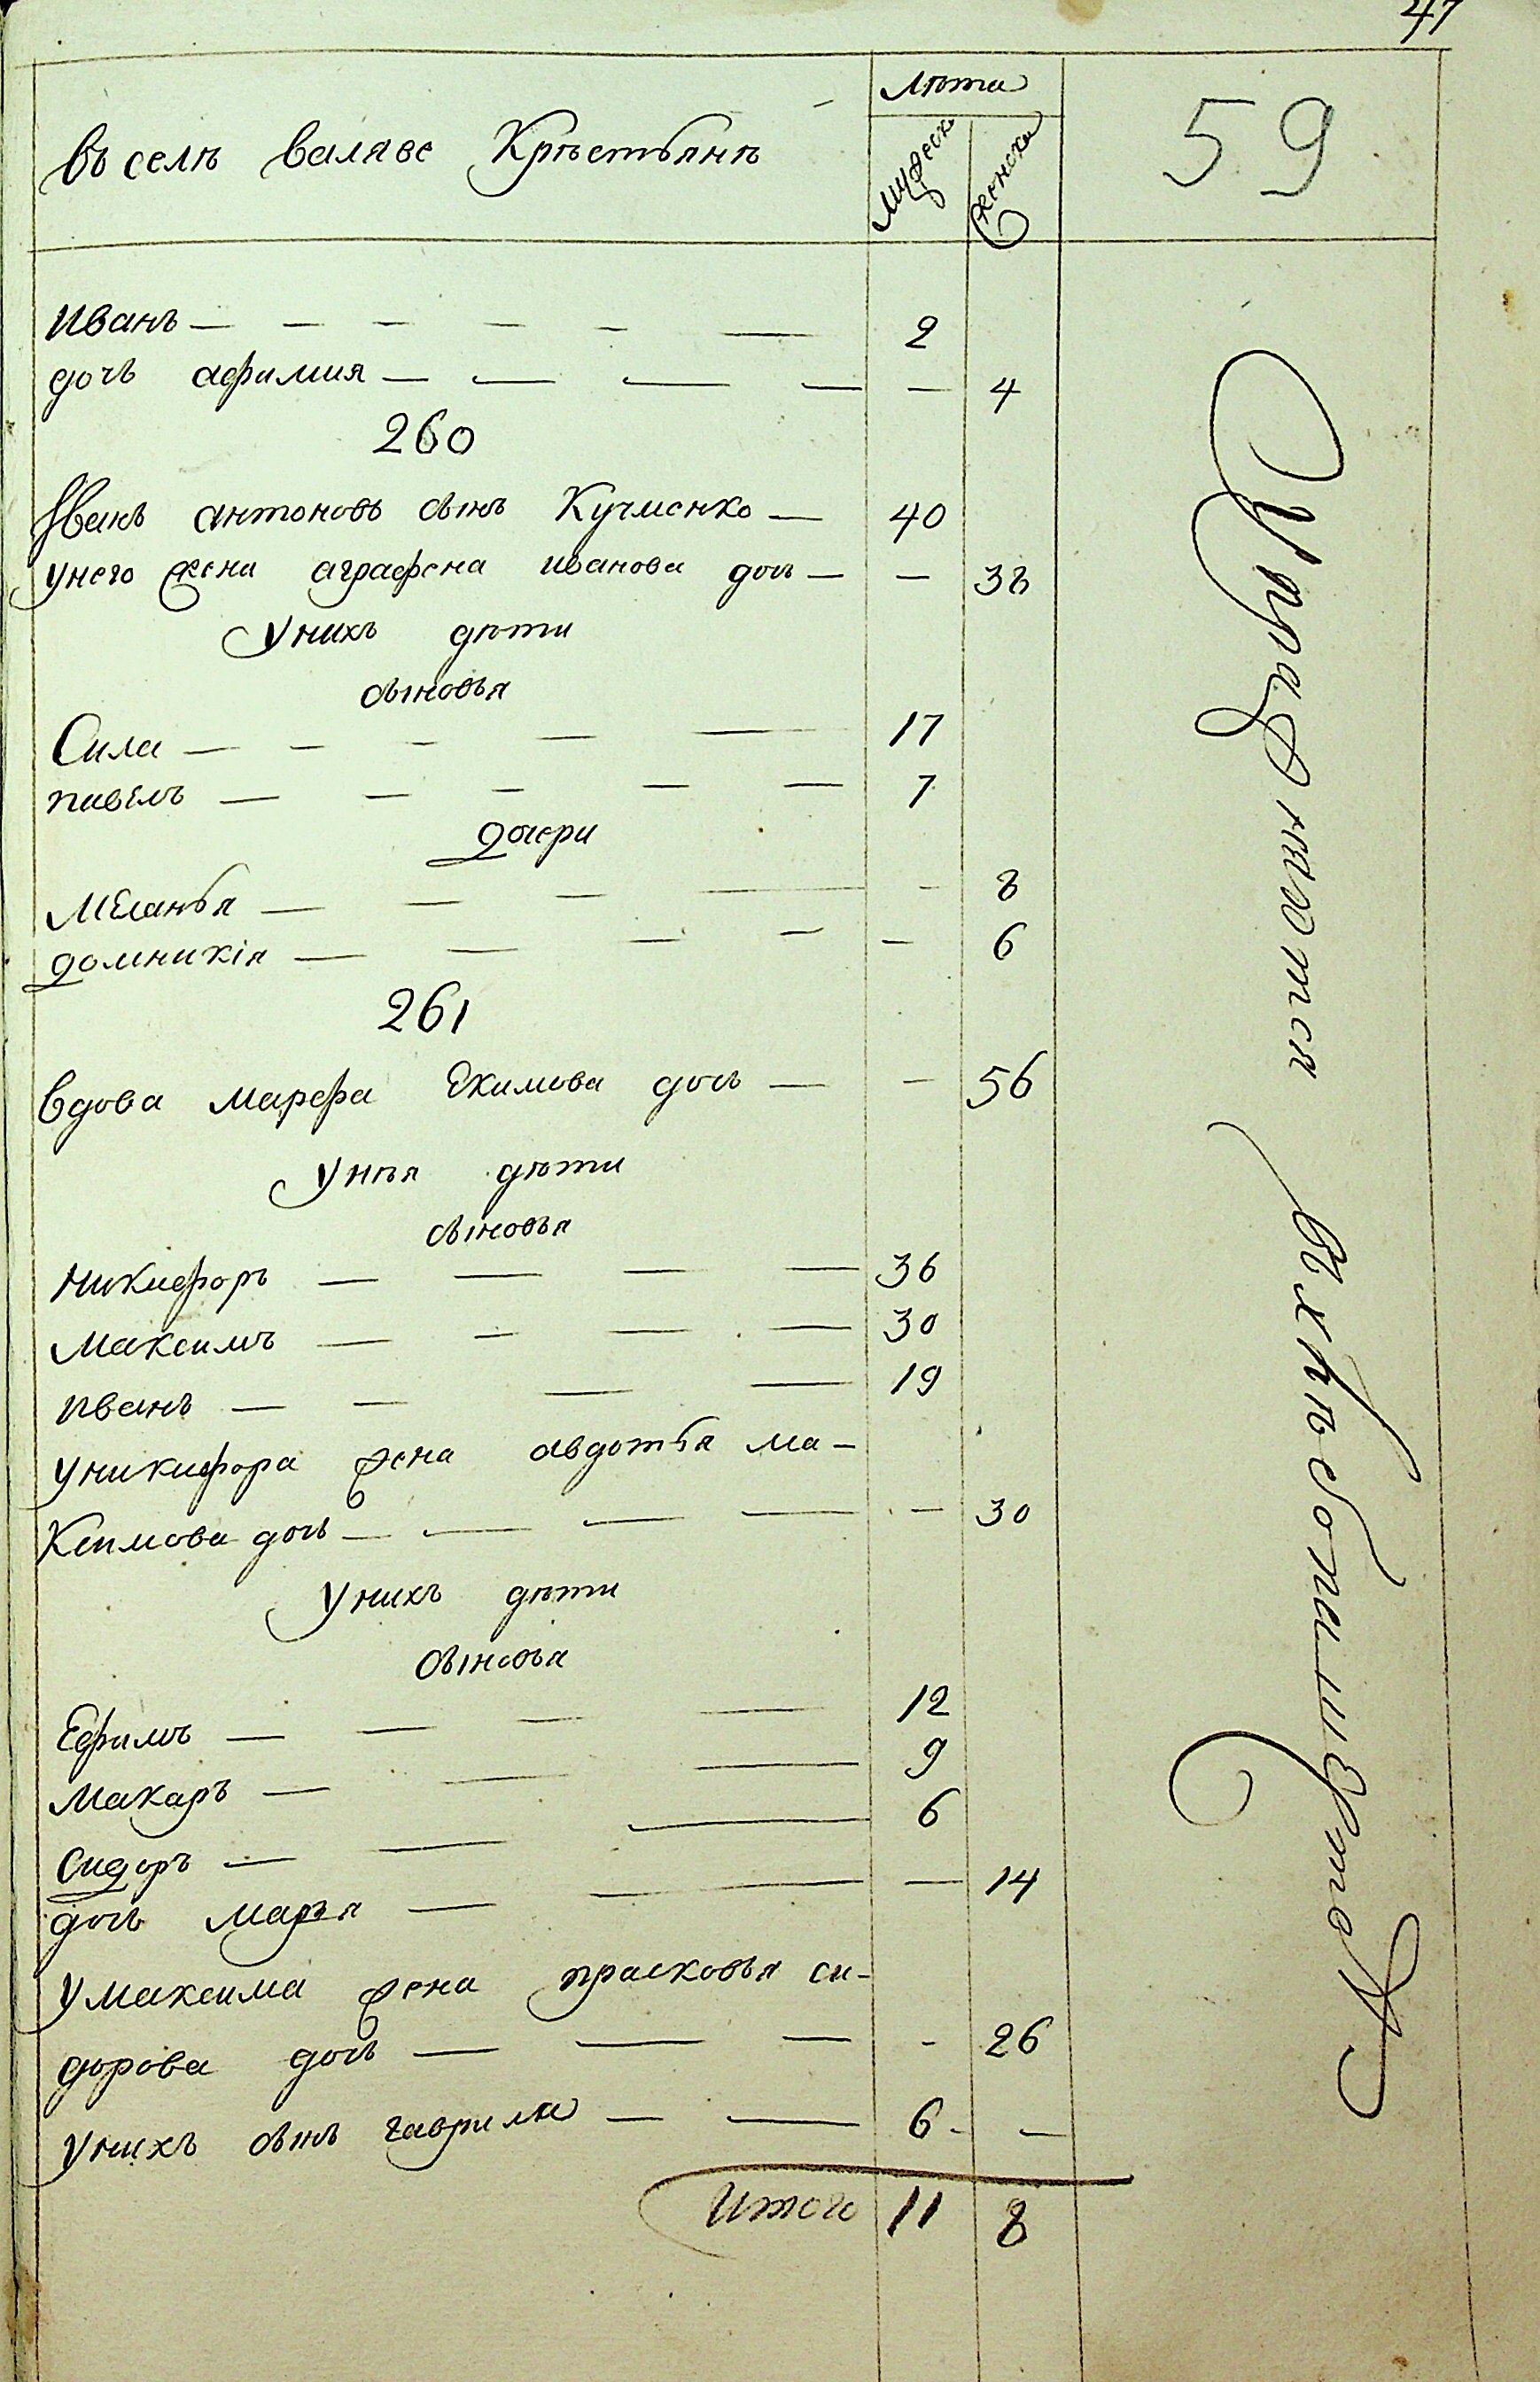 47
лѣта
59
въ селѣ валяве Крѣстьянѣ
мужеска
женска
иванъ — — — — — — 2
дочъ афимия — — — — — 4
260
Иванъ антоновъ сынъ Кучменко — 40
унего жена аграфена иванова дочь — — 38
Унихъ дѣти
сыновья
Сила — — — — — 17
павелъ — — — — — 7
дочери
меланья — — — — - 8
домникія — — — — — 6
261
вдова марфа Екимова дочь — — 56
Унѣя дѣти
сыновья
никифоръ — — — — 36
максимъ — — — — 30
иванъ — — — — 19
уникифора жена авдотья ма-
ксимова дочь — — — — — 30
Унихъ дѣти
сыновья
Ефимъ — — — — 12
макаръ — — — 9
сидоръ — — — 6
дочь марья — — — 14
умаксима жена прасковья си-
дорова дочь — — — - 26
унихъ сынъ гаврила — — 6 - —
Итого 11 8